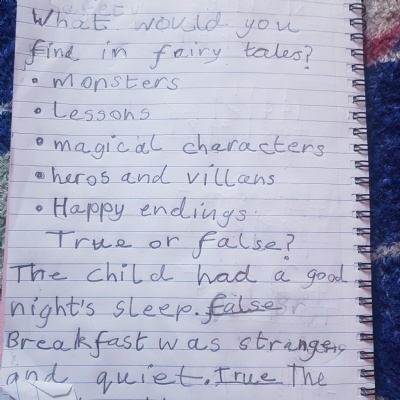 What would you
find in fairy tales?
• monsters
• Lessons
• magical characters
• heros and villans
• Happy endings
True or false?
The child had a good
night's sleep. false
Breakfast was strange
and quiet. True The